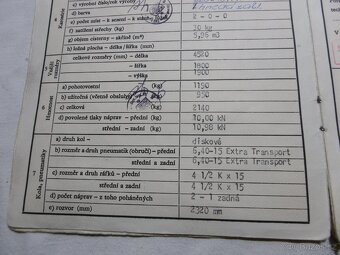 c) výrobní číslo/rok výroby
d) barva
e) počet míst – k sezení – k stání 2 - 0 - 0
f) zatížení střechy (kg) 30 kg
g) objem cisterny – skříně (m³) 5,96 m3
h) ložná plocha – délka / šířka (mm)
celkové rozměry (mm) – délka 4520
– šířka 1800
– výška 1900
a) pohotovostní (kg) 1190
b) užitečná (včetně obsluhy) (kg) 950
c) celková (kg) 2140
d) povolené tlaky náprav – přední (kg) 10,00 kN
střední – zadní (kg) 10,98 kN
a) druh kol – diskové
b) rozměr a druh pneumatik (obručí) – přední 6,40-15 Extra Transport
střední a zadní 6,40-15 Extra Transport
c) rozměr a druh ráfků – přední 4 1/2 K x 15
střední a zadní 4 1/2 K x 15
d) počet náprav – z toho poháněných 2 - 1 zadná
e) rozvor (mm) 2320 mm
Karoserie
Vnější rozměry
Hmotnost
Kola, pneumatiky